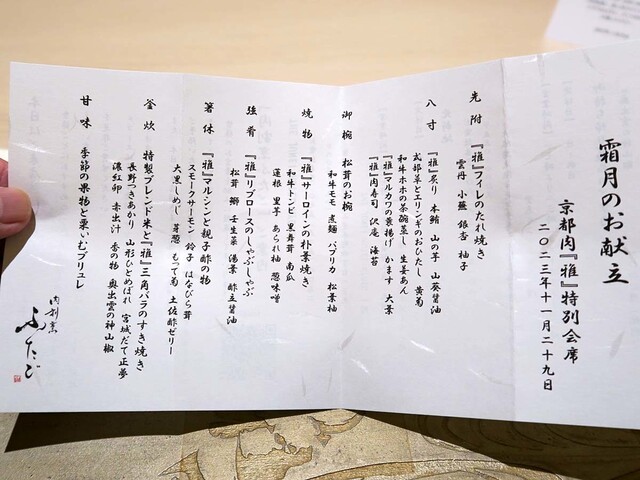 霜月のお献立
京都肉『雅』特別会席
二〇二三年十一月二十九日
先附 『雅』フィレのたれ焼き
雲丹 小蕪 銀杏 柚子
八寸 『雅』炙り 本鮪 山の芋 山葵醤油
太郎草とエリンギのおひたし 黄菊
和牛ホホの茶碗蒸し 生姜あん
『雅』マルカワの養揚げ かます 大葉
『雅』肉寿司 沢庵 海苔
御椀 松茸のお椀
和牛モモ 煮麺 パプリカ 松葉柚
焼物 『雅』サーロインの朴葉焼き
和牛トンビ 黒舞茸 南瓜
蓮根 里芋 あられ柚 葱味噌
強肴 『雅』リブロースのしゃぶしゃぶ
松茸 鱧 壬生菜 湯葉 酢立醤油
箸休 『雅』マルシンと親子酢の物
スモークサーモン 鈴子 はなびら茸
大黒しめじ 芽葱 もって菊 土佐酢ゼリー
釜炊 特製ブレンド米と『雅』三角バラのすき焼き
長野つきあかり 山形ひとめぼれ 宮城だて正夢
濃紅卵 赤出汁 香の物 奥出雲の神山椒
甘味 季節の果物と栗いむブリュレ
肉割烹
ふたご